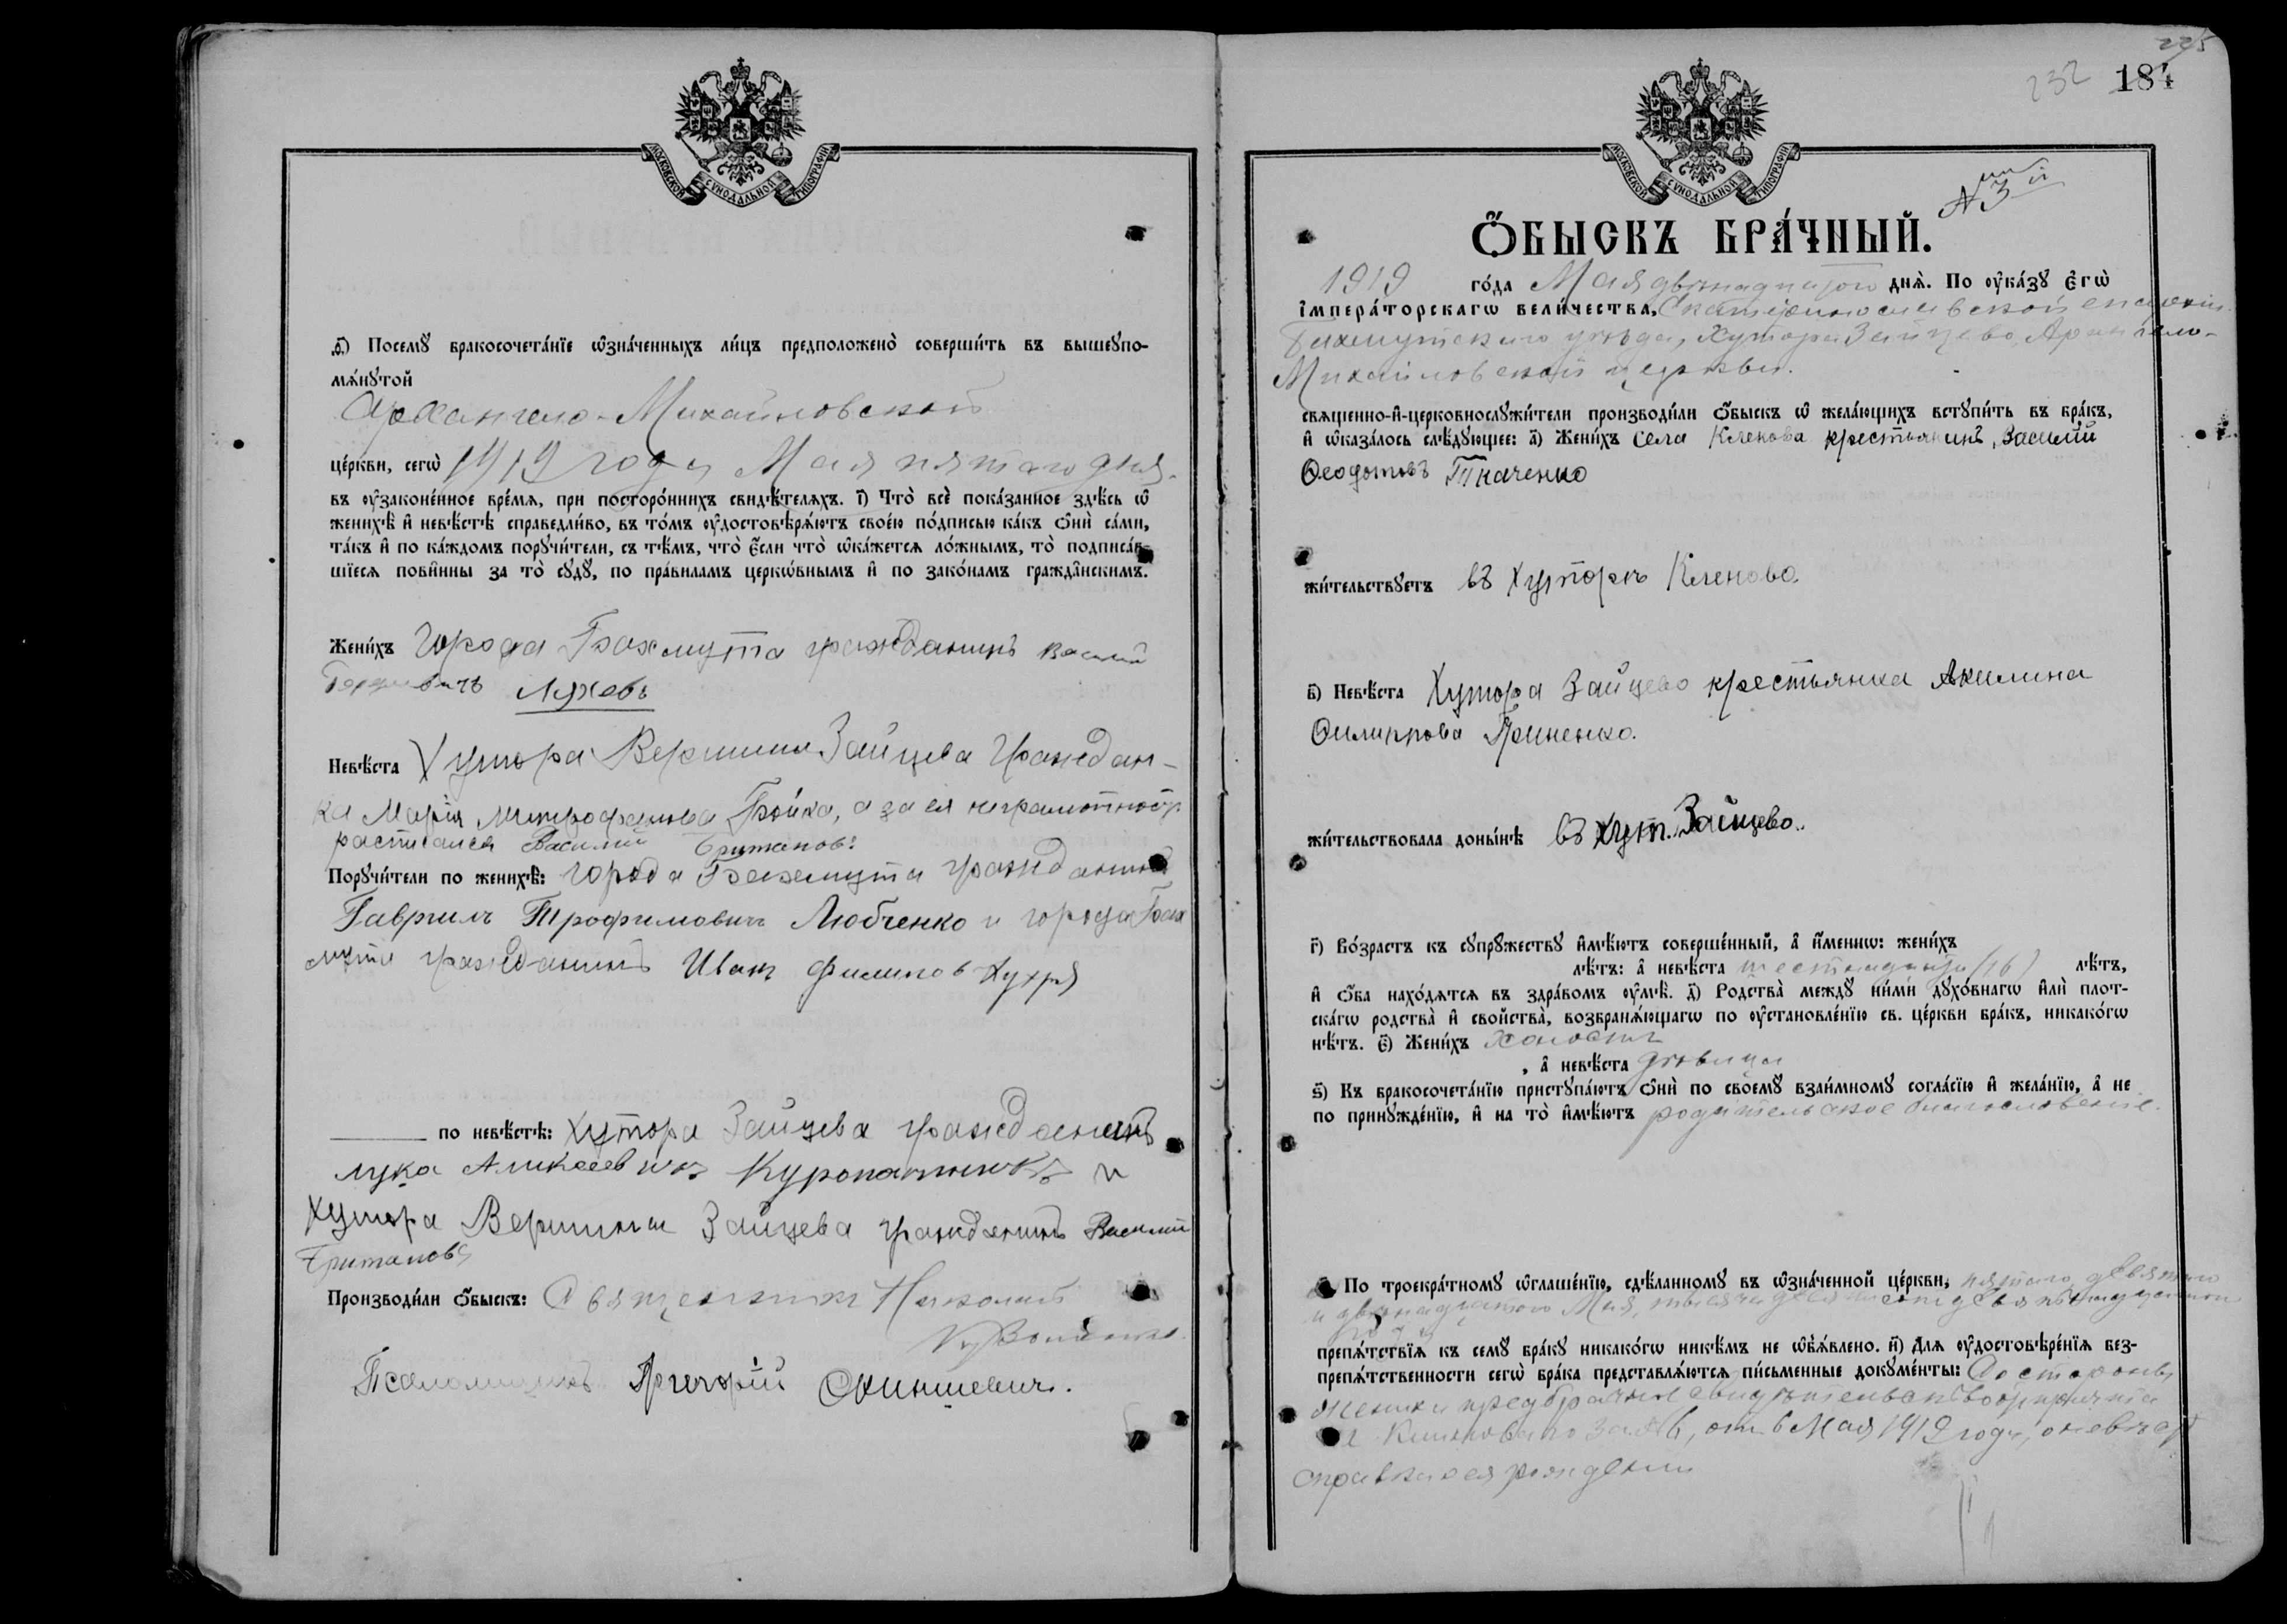 МОСКОВСКОЙ СѴНОДАЛЬНОЙ ТИПОГРАФІИ
ѳ҃) Посемꙋ̀ бракосочета́нїе ѡ҆зна́ченныхъ ли́цъ предположено̀ соверши́ть въ вышеꙋпо-
мѧ́нꙋтой
Архангело-Михайловской
це́ркви, сегѡ̀ 1919 года Мая пятаго дня.
въ ᲂу҆законе́нное вре́мѧ, при посторо́ннихъ свидѣ́телѧхъ. і҃) Что̀ всѐ пока́занное здѣ́сь ѡ҆
женихѣ̀ и҆ невѣ́стѣ справедли́во, въ то́мъ ᲂу҆достовѣрѧ́ютъ свое́ю по́дписью ка́къ ѻ҆нѝ са́ми,
та́къ и҆ по ка́ждомъ порꙋчи́тели, съ тѣ́мъ, что̀ є҆́сли что̀ ѡ҆ка́жетсѧ ло́жнымъ, то̀ подписа́в-
шїесѧ пови́нны за то̀ сꙋдꙋ̀, по пра́виламъ церкѡ́внымъ и҆ по зако́намъ гражда́нскимъ.
Жени́хъ Города Бахмута гражданинъ Василий
Ляховъ
Невѣ́ста Хутора Вершина Зайцева Граждан-
ка Марія Митрофанова Бойко, а за ея неграмотностр
расписался Василий Британовъ:
Порꙋчи́тели по женихѣ̀: города Бахмута гражданинъ
Гавриль Трофимовичъ Любченко и города Бах
мута гражданинъ Иван Филипов Хухря
по невѣ́стѣ: хутора Зайцева гражданинъ
лука Аликсеевичъ Куропатникъ и
Хутора Вершины Зайцева гражданинъ Василий
Британовъ
Производи́ли ѻ҆́быскъ: Священникъ Николай
Псаломщикъ Григорій Скиншевич.
225
232 184
МОСКОВСКОЙ СѴНОДАЛЬНОЙ ТИПОГРАФІИ
№ 3й
Ѻ҆́БЫСКЪ БРА́ЧНЫЙ.
1919 го́да Мая двенадцатого днѧ̀. По ᲂу҆ка́зꙋ Є҆гѡ̀
І҆мпера́торскагѡ вели́чества, Екатеринославской епархіи
Бахмутского уезда, Хутора Зайцево, Архангело-
Михайловской церкви.
свѧще́нно-и҆-церковнослꙋжи́тели производи́ли ѻ҆́быскъ ѡ҆ жела́ющихъ встꙋпи́ть въ бра́къ,
и҆ ѡ҆каза́лось слѣ́дꙋющее: а҃) Жени́хъ села Кленова крестьянинъ, Василій
Ѳеодотовъ Ткаченко
жи́тельствꙋетъ въ Хуторѣ Кленово.
в҃) Невѣ́ста Хутора Зайцево крестьянка Акилина
Филиппова Гриненко.
жи́тельствовала доны́нѣ въ хут. Зайцево.
г҃) Во́зрастъ къ сꙋпрꙋ́жествꙋ и҆мѣ́ютъ соверше́нный, а҆ и҆́меннѡ: жени́хъ
лѣ́тъ: а҆ невѣ́ста шестнадцати (16) лѣ́тъ,
и҆ ѻ҆́ба нахо́дѧтсѧ въ здра́вомъ ᲂу҆мѣ̀. д҃) Родства̀ междꙋ̀ ни́ми дꙋхо́внагѡ и҆лѝ плот-
ска́гѡ родства̀ и҆ свойства̀, возбранѧ́ющагѡ по ᲂу҆становле́нїю св. це́ркви бра́къ, никако́гѡ
нѣ́тъ. є҃) Жени́хъ Холостъ
, а҆ невѣ́ста девица
ѕ҃) Къ бракосочета́нїю пристꙋпа́ютъ ѻ҆нѝ по своемꙋ̀ взаи́мномꙋ согла́сїю и҆ жела́нїю, а҆ не
по принꙋжде́нїю, и҆ на то̀ и҆мѣ́ютъ родительское благословеніе.
з҃) По троекра́тномꙋ ѡ҆глаше́нїю, сдѣ́ланномꙋ въ ѡ҆зна́ченной це́ркви, пятого, девятого
и двенадцатого Мая, тысяча девятьсот девятнадцатого
года
препѧ́тствїѧ къ семꙋ̀ бра́кꙋ никако́гѡ нике́мъ не ѡ҆б̾ѧ́влено. и҃) Длѧ̀ ᲂу҆достовѣре́нїѧ без-
препѧ́тственности сегѡ̀ бра́ка представлѧ́ютсѧ пи́сьменные докꙋме́нты: Со стороны
жениха предбрачное свидетельство причта
с. Кленового за № 6, от 6 Мая 1919 года, о невесте
справка о ея рождении